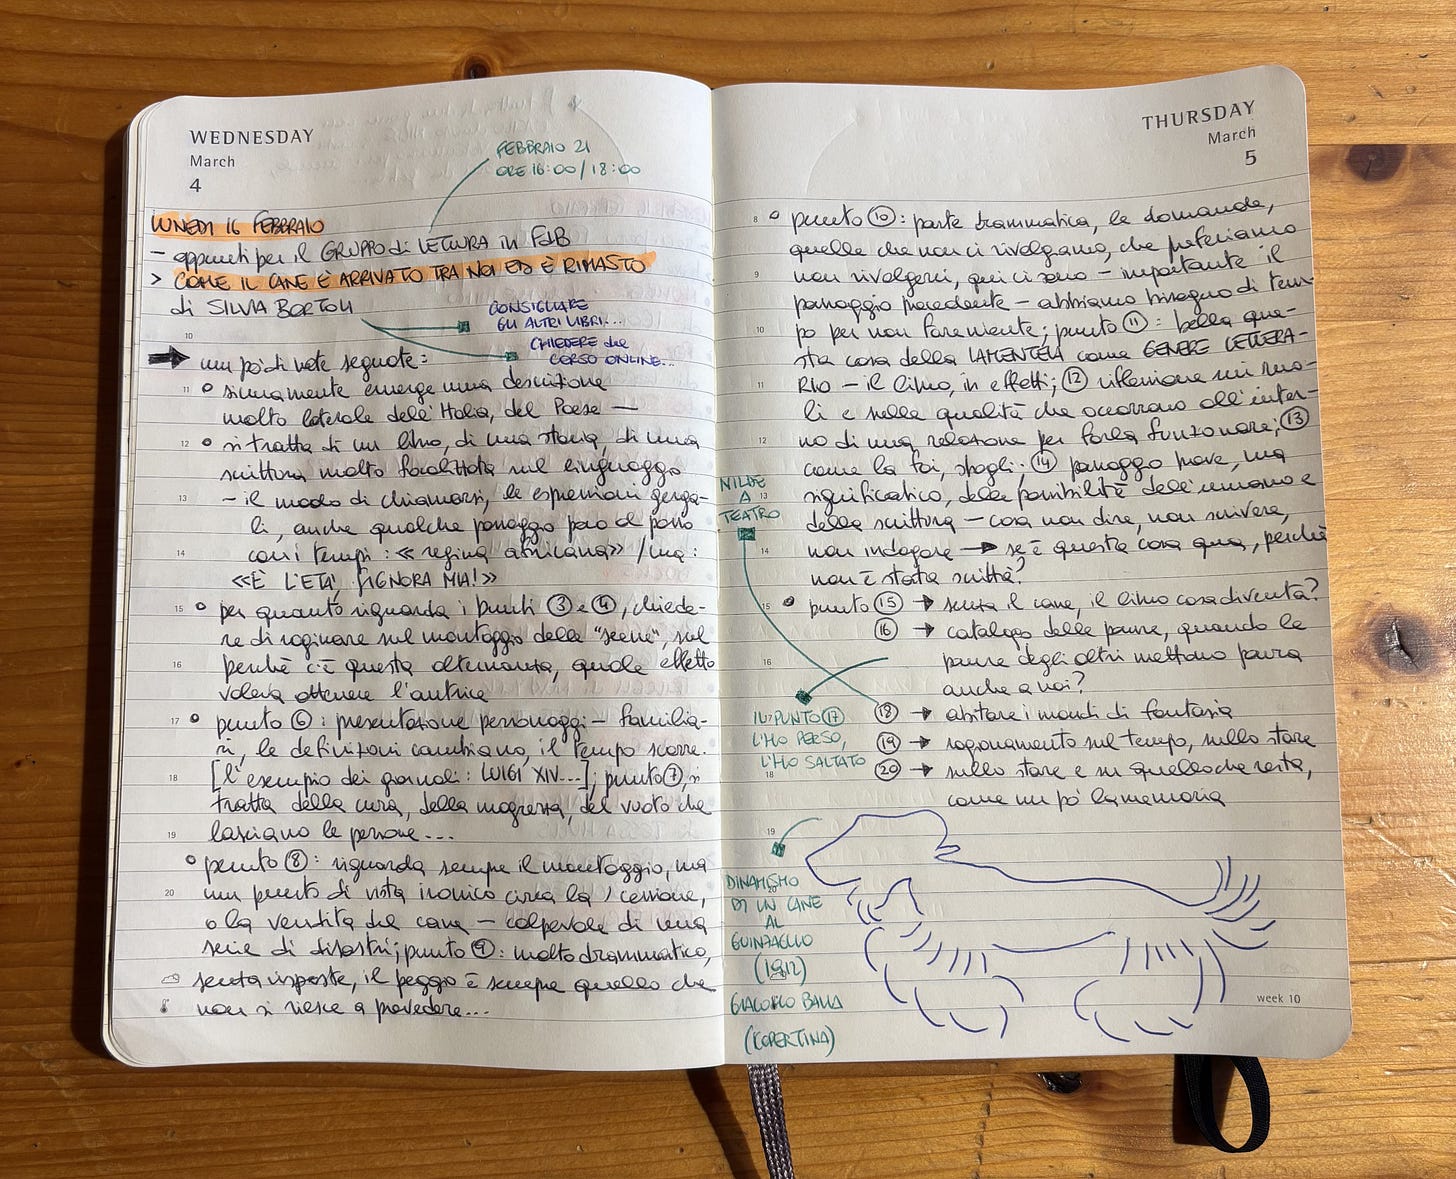 WEDNESDAY
March
4
FEBBRAIO 21
ORE 16:00/18:00
LUNEDÌ 16 FEBBRAIO
- appunti per il GRUPPO di LETTURA in FdB
> COME IL CANE È ARRIVATO TRA NOI ED È RIMASTO
di SILVIA BORTOLI
CONSIGLIARE
GLI ALTRI LIBRI...
CHIEDERE del
CORSO ONLINE...
10
➡ un po' di note segnate:
11 o sicuramente emerge una descrizione
molto laterale dell'Italia, del Paese —
12 o si tratta di un libro, di una storia, di una
scrittura molto focalizzata sul linguaggio
13 - il modo di chiamarsi, le espressioni gerga-
li, anche qualche passaggio passo al passo
14 coi tempi: «regina africana» / ma:
«È L'ETÀ, SIGNORA MIA!»
15 o per quanto riguarda i punti ③ e ④, chiede-
re di ragionare sul montaggio delle "scene", sul
16 perché c'è questa alternanza, quale effetto
voleva ottenere l'autrice
17 o punto ⑥: presentazione personaggi - familia-
ri, le definizioni cambiano, il tempo scorre.
18 [l'esempio dei giornali: LUIGI XIV...]; punto ⑦, si
tratta della cura, della magrezza, del vuoto che
19 lasciano le persone...
o punto ⑧: riguarda sempre il montaggio, ma
20 un punto di vista ironico circa la cessione,
o la vendita del cane - colpevole di una
serie di disastri; punto ⑨: molto drammatico,
senza risposte, il peggio è sempre quello che
non si riesce a prevedere...
THURSDAY
March
5
8 o punto ⑩: parte drammatica, le domande,
quelle che non ci rivolgiamo, che preferiamo
9 non rivolgerci, qui ci sono - importante il
passaggio precedente - abbiamo bisogno di tem-
10 po per non fare niente; punto ⑪: bella que-
sta cosa della LAMENTELA come GENERE LETTERA-
11 RIO - il libro, in effetti; ⑫ riflessione sui ruo-
li e sulle qualità che occorrono all'inter-
12 no di una relazione per farla funzionare; ⑬
come la fai, sbagli; ⑭ passaggio breve, ma
13 significativo, delle possibilità dell'umano e
della scrittura - cosa non dire, non scrivere,
14 non indagare → se è questa cosa qua, perché
non è stata scritta?
15 o punto ⑮ → senza il cane, il libro cosa diventa?
⑯ → catalogo delle paure, quando le
16 paure degli altri mettono paura
anche a noi?
⑱ → abitare i mondi di fantasia
⑲ → ragionamento sul tempo, sullo stare
18 ⑳ → sullo stare e su quello che resta,
come un po' la memoria
NILDE
A
TEATRO
IL PUNTO ⑰
L'HO PERSO,
L'HO SALTATO
19
DINAMISMO
DI UN CANE
AL
GUINZAGLIO
(1912)
GIACOMO BALLA
(COPERTINA)
week 10